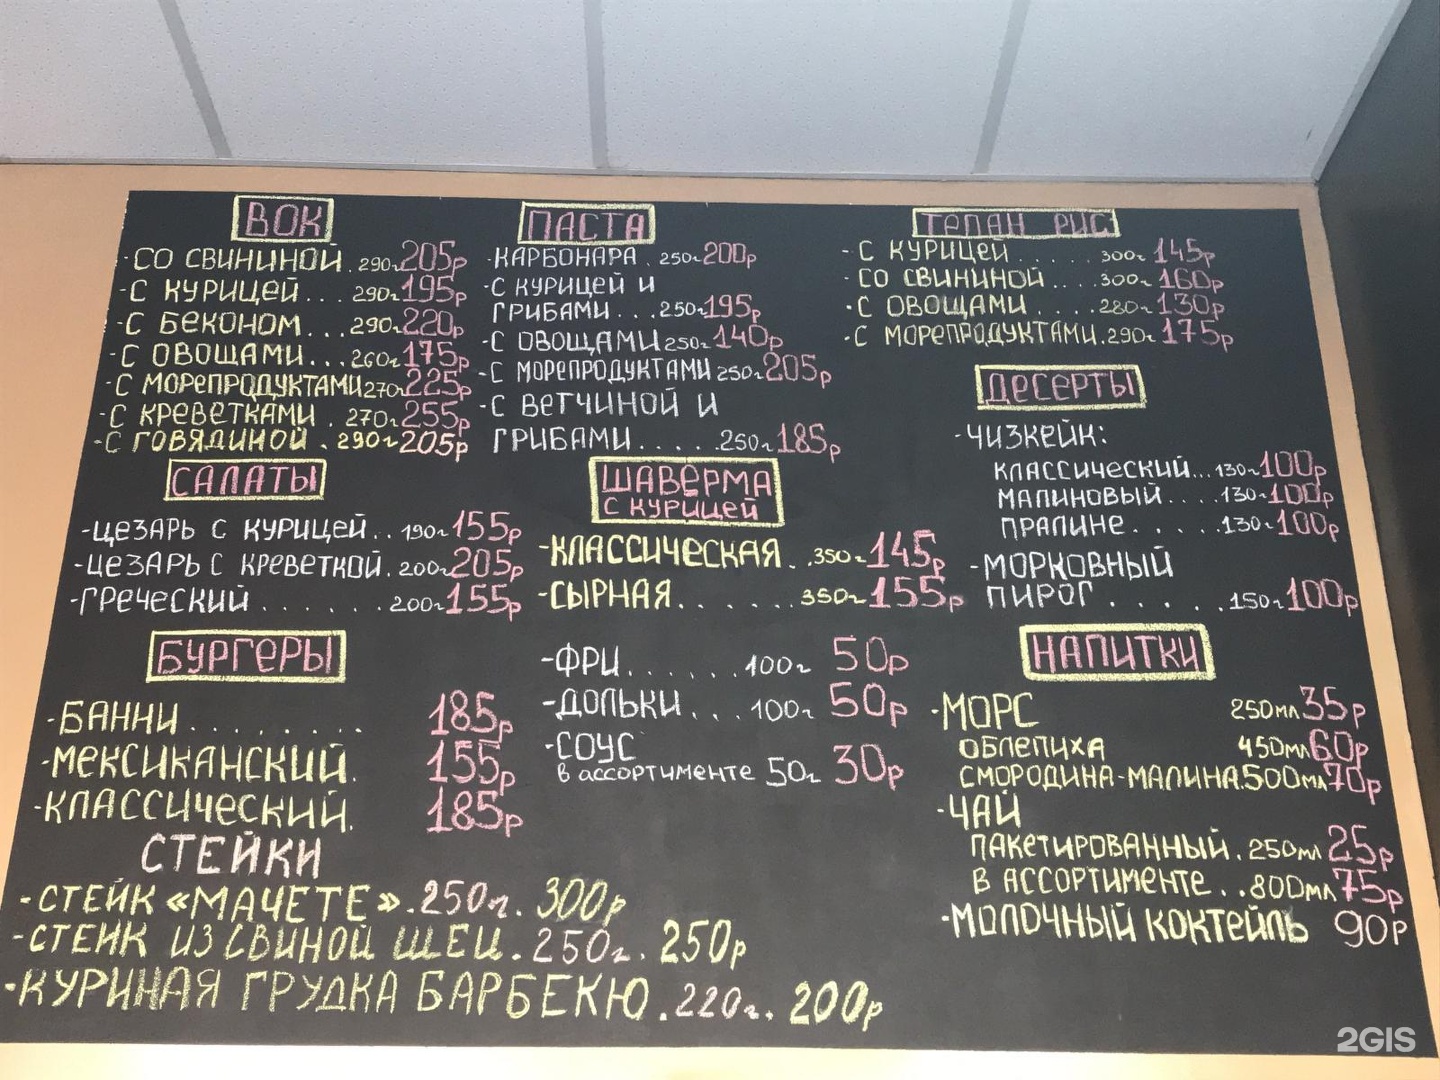 ВОК
- СО СВИНИНОЙ . 290г 205р
- С КУРИЦЕЙ . . . 290г 195р
- С БЕКОНОМ . . . 290г 220р
- С ОВОЩАМИ . . . 260г 175р
- С МОРЕПРОДУКТАМИ 270г 225р
- С КРЕВЕТКАМИ . 270г 255р
- С ГОВЯДИНОЙ . 290г 205р
САЛАТЫ
- ЦЕЗАРЬ С КУРИЦЕЙ . . 190г 155р
- ЦЕЗАРЬ С КРЕВЕТКОЙ . 200г 205р
- ГРЕЧЕСКИЙ . . . . . . 200г 155р
БУРГЕРЫ
- БАННИ . . . . . . . . 185р
- МЕКСИКАНСКИЙ . 155р
- КЛАССИЧЕСКИЙ . 185р
СТЕЙКИ
- СТЕЙК «МАЧЕТЕ» . 250г. 300р
- СТЕЙК ИЗ СВИНОЙ ШЕИ . 250г. 250р
- КУРИНАЯ ГРУДКА БАРБЕКЮ . 220г. 200р
ПАСТА
- КАРБОНАРА . 250г 200р
- С КУРИЦЕЙ И
ГРИБАМИ . . . 250г 195р
- С ОВОЩАМИ 250г 140р
- С МОРЕПРОДУКТАМИ 250г 205р
- С ВЕТЧИНОЙ И
ГРИБАМИ . . . . . 250г 185р
ШАВЕРМА
С КУРИЦЕЙ
- КЛАССИЧЕСКАЯ . . 350г 145р
- СЫРНАЯ . . . . . . 350г 155р
- ФРИ . . . . . . 100г 50р
- ДОЛЬКИ . . . 100г 50р
- СОУС
в ассортименте 50г 30р
ТЕПАН РИС
- С КУРИЦЕЙ . . . . . 300г 145р
- СО СВИНИНОЙ . . . . 300г 160р
- С ОВОЩАМИ . . . . 280г 130р
- С МОРЕПРОДУКТАМИ . 290г 175р
ДЕСЕРТЫ
- ЧИЗКЕЙК:
КЛАССИЧЕСКИЙ . . . 130г 100р
МАЛИНОВЫЙ . . . . 130г 100р
ПРАЛИНЕ . . . . . 130г 100р
- МОРКОВНЫЙ
ПИРОГ . . . . . 150г 100р
НАПИТКИ
- МОРС 250мл 35р
ОБЛЕПИХА 450мл 60р
СМОРОДИНА-МАЛИНА 500мл 70р
- ЧАЙ
ПАКЕТИРОВАННЫЙ . 250мл 25р
В АССОРТИМЕНТЕ . . 800мл 75р
- МОЛОЧНЫЙ КОКТЕЙЛЬ 90р
2GIS